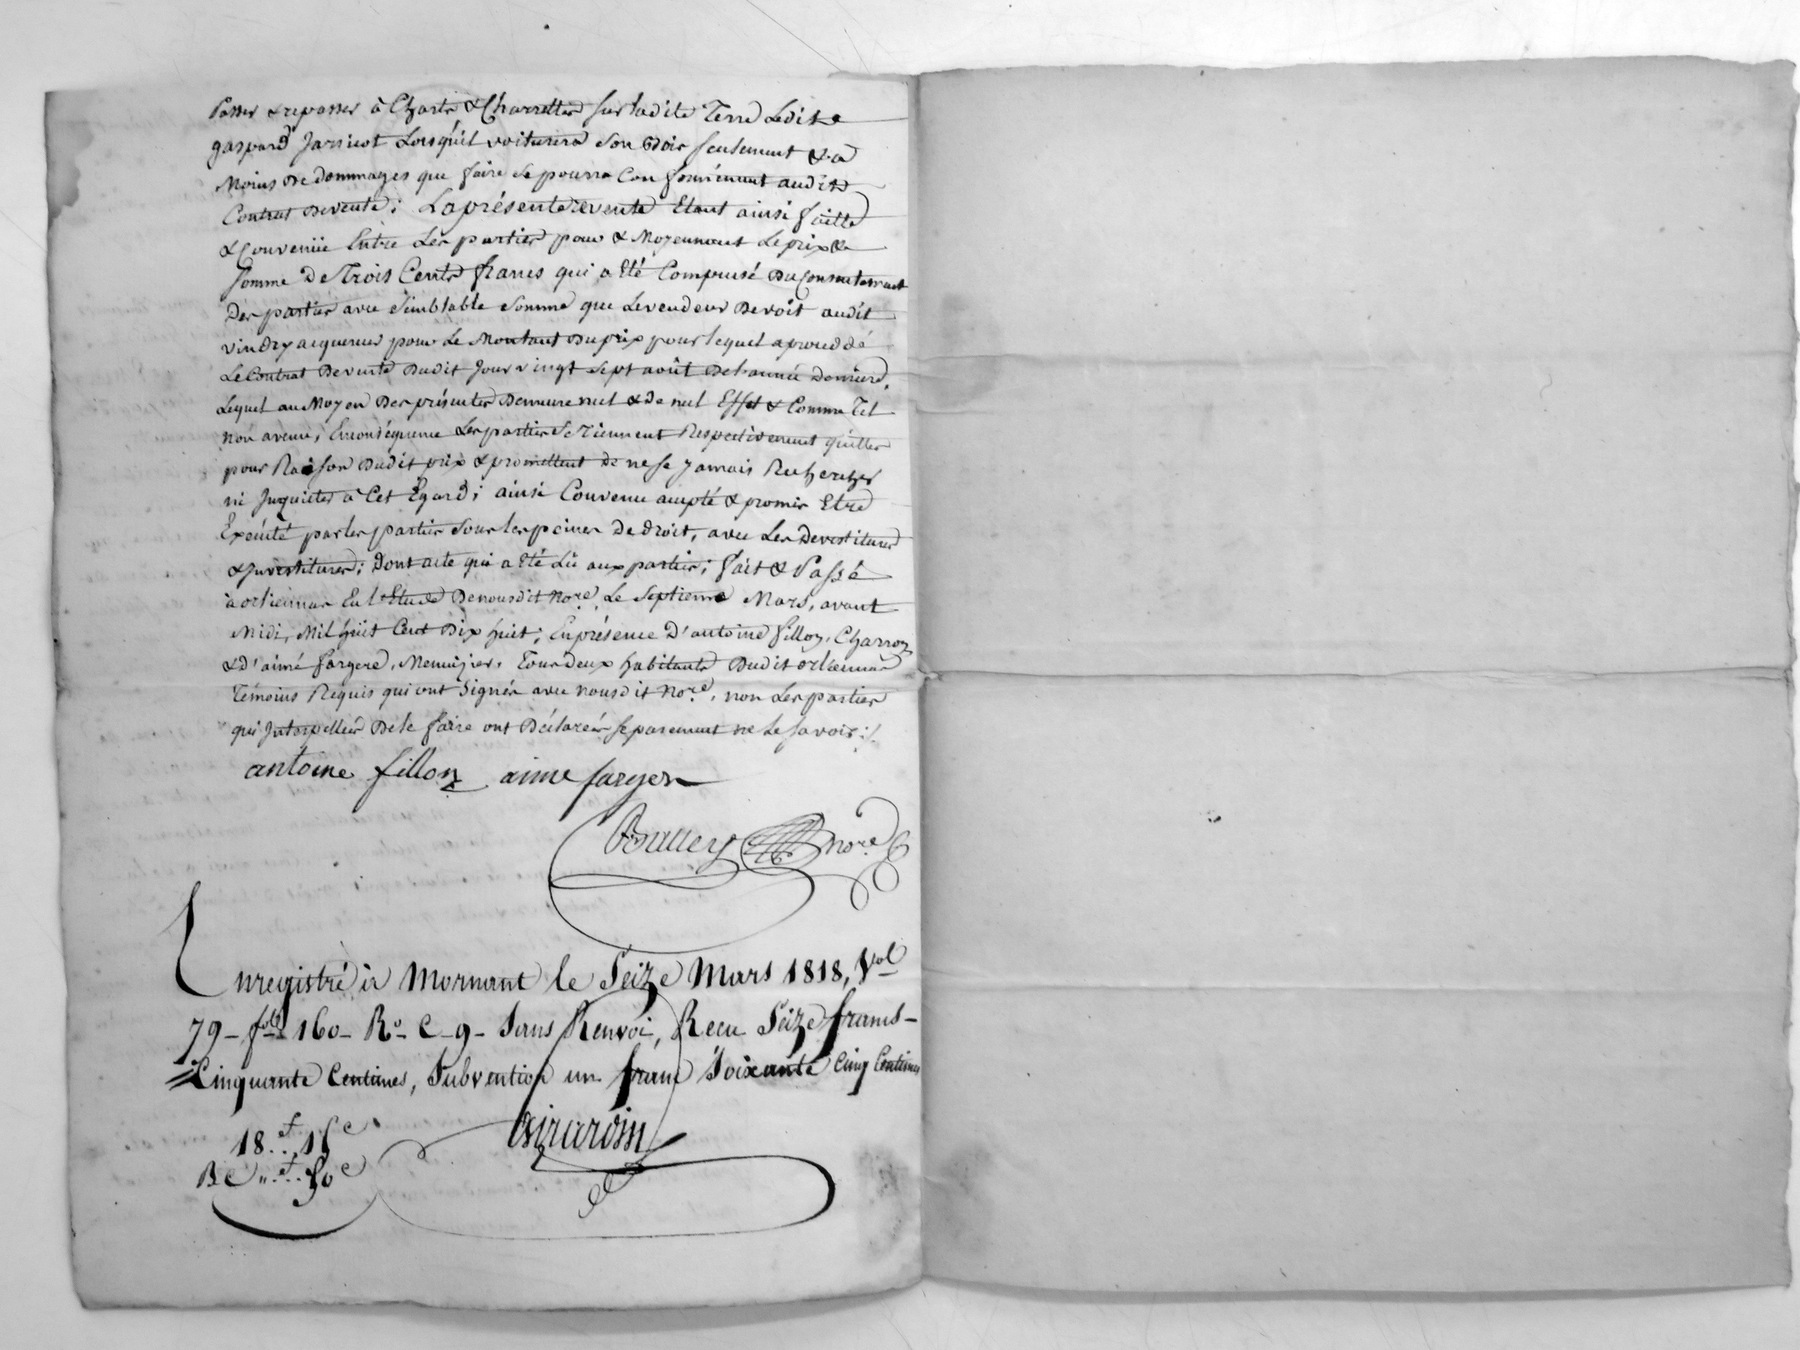 Passer & repasser à Chars & Charrettes sur ladite Terre Ledit
gaspard Jaricot Lorsqu'il voiturera son Bois seulement & à
Moins de dommages que faire se pourra Conformément audit
Contrat De vente; La présente revente Etant ainsi faitte
& Convenüe Entre Les parties pour & Moyennant Le prix &
somme De Trois Cents francs qui a Eté Compensé Du Consentement
Des parties avec semblable somme que Le vendeur Devoit audit
vindry acquereur pour Le Montant Du prix pour lequel a procédé
Le Contrat De vente Dudit Jour vingt sept août De l'année Derniere,
Lequel au Moyen Des présentes Demeure nul & de nul Effet & Comme Tel
non avenu; En conséquence Les parties se Tiennent Respectivement quittes
pour Raison Dudit prix & promettent de ne se jamais Rechercher
ni Inquieter à Cet Egard; ainsi Convenu accepté & promis Etre
Exécuté par les parties sous les peines De droit, avec Les Devestitures
& Investitures; Dont acte qui a Eté Lû aux parties; fait & Passé
à orliennas En l'Etude De nousdit No.re, Le septieme Mars, avant
Midi, Mil huit Cent Dix huit; En présence D'antoine fillon, Charron
& d'aimé fargere, Menuisier, Tous Deux habitants Dudit orliennas
Témoins Requis qui ont signés avec nousdit No.re, non Les parties
qui Interpellées De le faire ont Déclarées séparement ne le savoir ./.
antoine fillon aime farger
no.re
Enregistré à Mornant le Seize Mars 1818, Vol
79 - fol. 160 - R.o C - 9 - Sans Renvoi, Recu Seize francs -
Cinquante Centimes, Subvention un franc Soixante Cinq Centimes
Girardin
18.f 15c